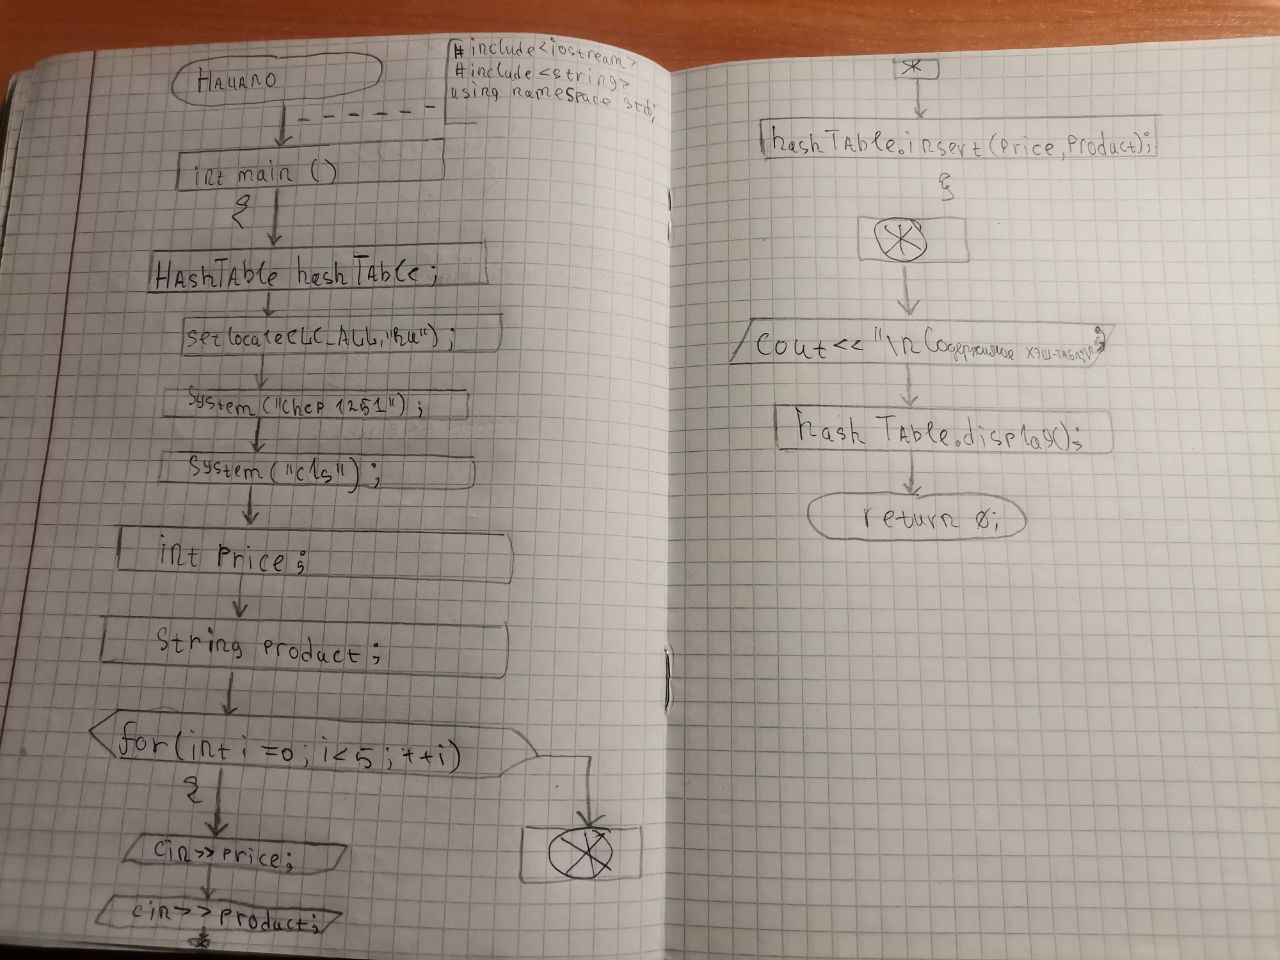 Начало
#include<iostream>
#include<string>
using namespace std;
int main ()
{
HAshTAble hashTAble;
setlocate(LC_ALL,"Ru");
System("chcp 1251");
System("cls");
int Price;
String Product;
for(int i=0; i<5; ++i)
{
cin>>Price;
cin>>Product;
*
*
*
hashTAble.insert(Price,Product);
}
*
cout<< "\nСодержимое хэш-таблицы
hash TAble.display();
return 0;